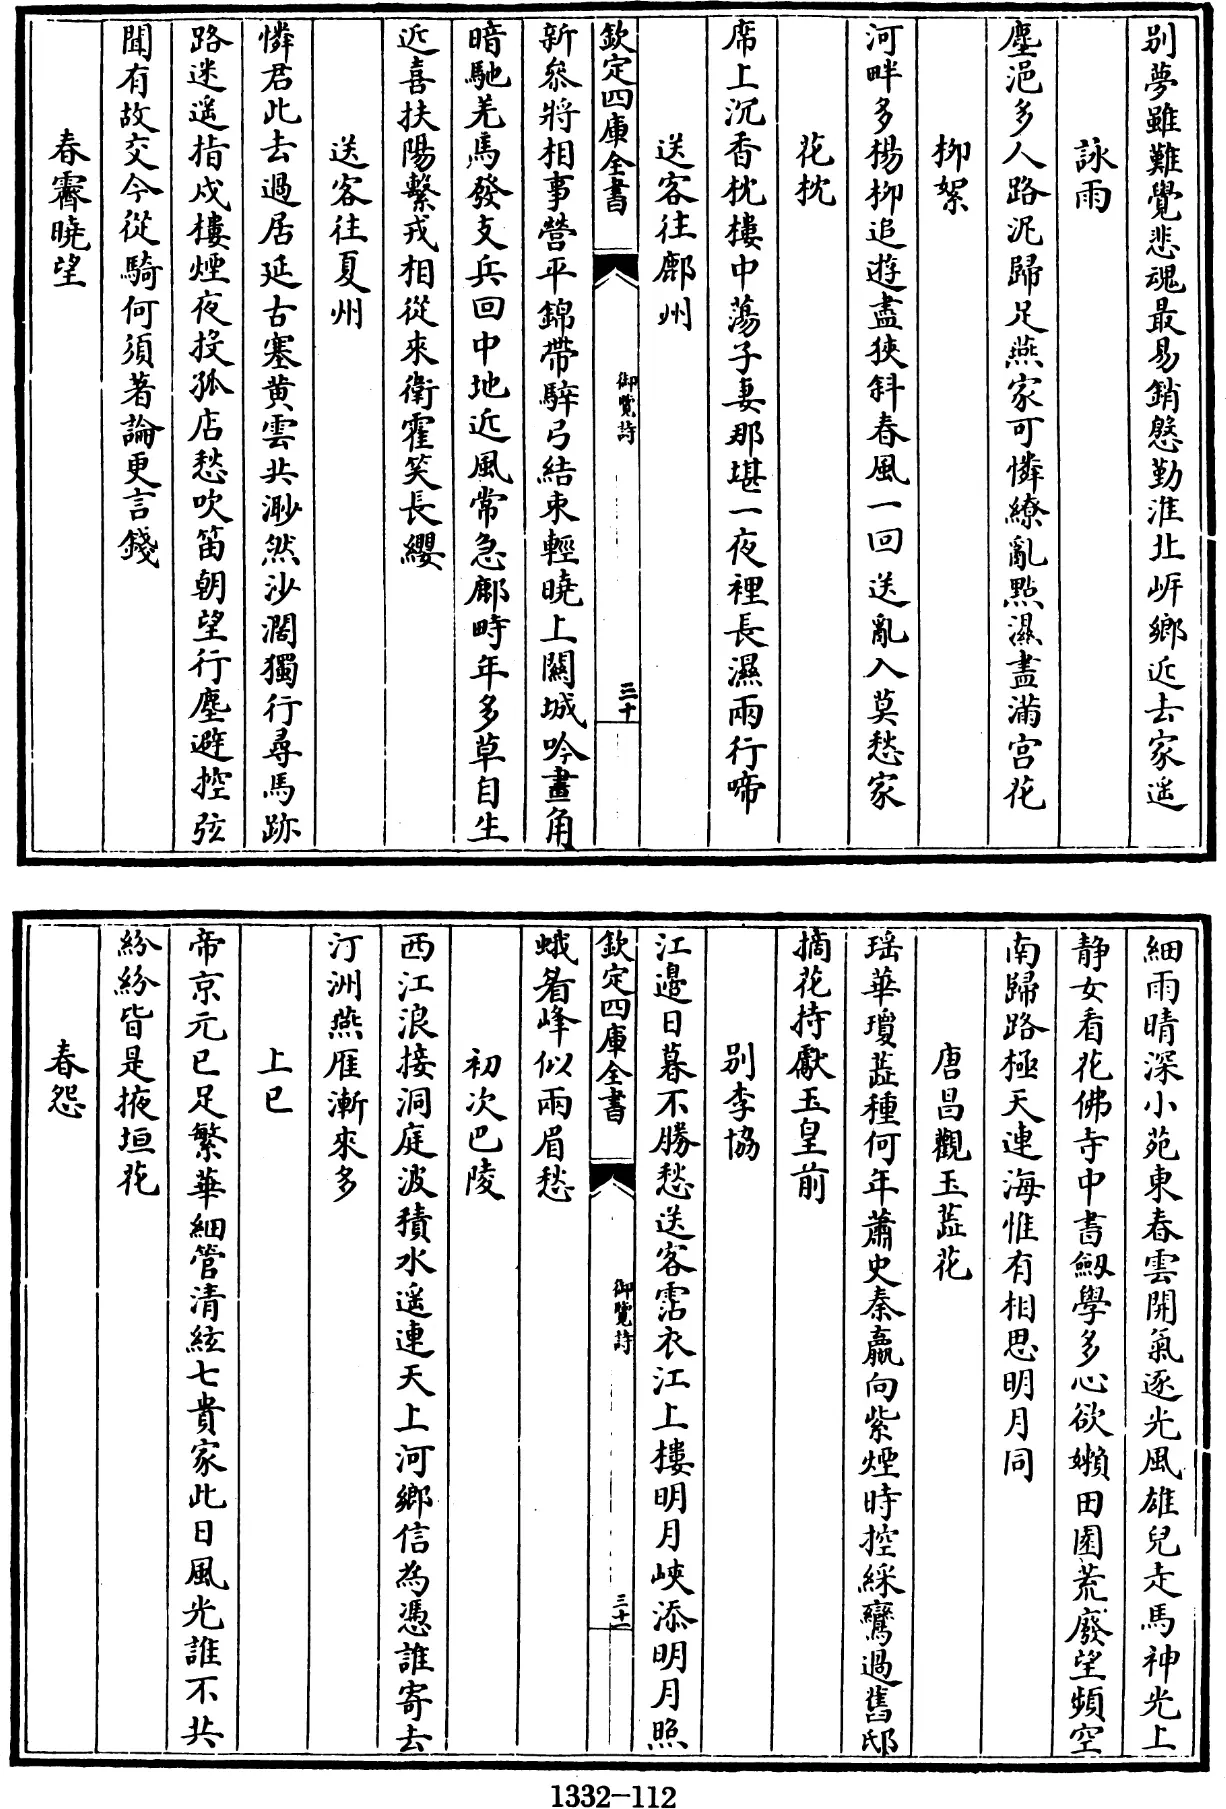 别夢雖難覺悲魂最易銷慇勤淮北岍鄉近去家遥
詠雨
塵浥多人路泥歸足燕家可憐繚亂㸃濕盡滿宫花
栁絮
河畔多楊栁追遊盡狹斜春風一回送亂入莫愁家
花枕
席上沉香枕樓中蕩子妻那堪一夜裡長濕兩行啼
送客往鄜州
欽定四庫全書
御覽詩
三十
新叅將相事營平錦帶騂弓結束輕曉上關城吟畫角
暗馳羌馬發支兵回中地近風常急鄜畤年多草自生
近喜扶陽繫戎相從來衛霍笑長纓
送客往夏州
憐君此去過居延古塞黄雲共渺然沙濶獨行尋馬跡
路迷遥指戍樓煙夜投孤店愁吹笛朝望行塵避控弦
聞有故交今從騎何須著論更言錢
春霽曉望
細雨晴深小苑東春雲開氣逐光風雄兒走馬神光上
静女看花佛寺中書劔學多心欲嬾田園荒廢望頻空
南歸路極天連海惟有相思明月同
唐昌觀玉蘂花
瑶華瓊蘂種何年蕭史秦嬴向紫煙時控綵鸞過舊邸
摘花持獻玉皇前
别李協
江邉日暮不勝愁送客霑衣江上樓明月峽添明月照
欽定四庫全書
御覽詩
三十一
蛾眉峰似兩眉愁
初次巴陵
西江浪接洞庭波積水遥連天上河鄉信為憑誰寄去
汀洲燕雁漸來多
上巳
帝京元巳足繁華細管清絃七貴家此日風光誰不共
紛紛皆是掖垣花
春怨
1332-112